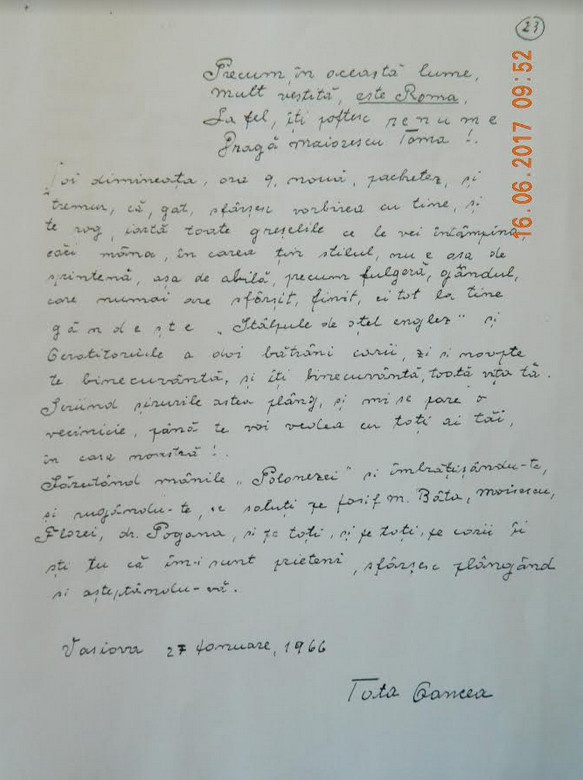 23
Precum, în această lume,
mult vestită, este Roma,
La fel, îți poftesc renume
Dragă Maiorescu Toma!.
Joi dimineața, ora 9, nouă, pachetez, și
tremur, că, gat, sfârșesc vorbirea cu tine, și
te rog, iartă toate greșelile ce le vei întâmpina,
căci mâna, în carea țin stilul, nu e așa de
sprintenă, așa de abilă, precum fulgeră, gândul,
care numai are sfârșit, finit, ci tot la tine
gândește „Stâlpule de oțel englez" și
a doi bătrâni carii, zi și noapte
te binecuvântă, și îți binecuvântă, toată vița tă.
Scriind șirurile astea plâng, și mi se pare o
vecinicie, până te voi vedea cu toți ai tăi,
în casa noastră!.
Sărutând mânile „Polonezei" și îmbrățișându-te,
și rugându-te, se saluți pe Iosif M. Bâta, Moisescu,
Florei, dr. Pogana, și pe toți, și pe toți, pe carii îi
ști tu că îm-i sunt prieteni, sfârșesc plângând
și așteptându-vă.
Vasiova 27 Ianuare, 1966
Tata Gancea
16.06.2017 09:52